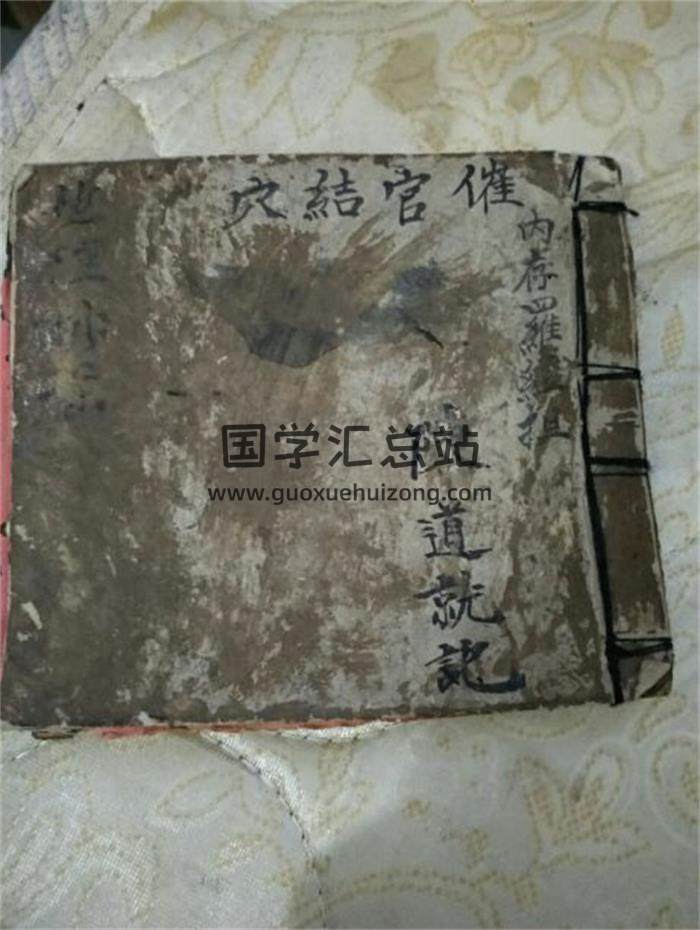 催官結穴
内存四羅經
道就記
地理
国学汇总站
www.guoxuehuizong.com